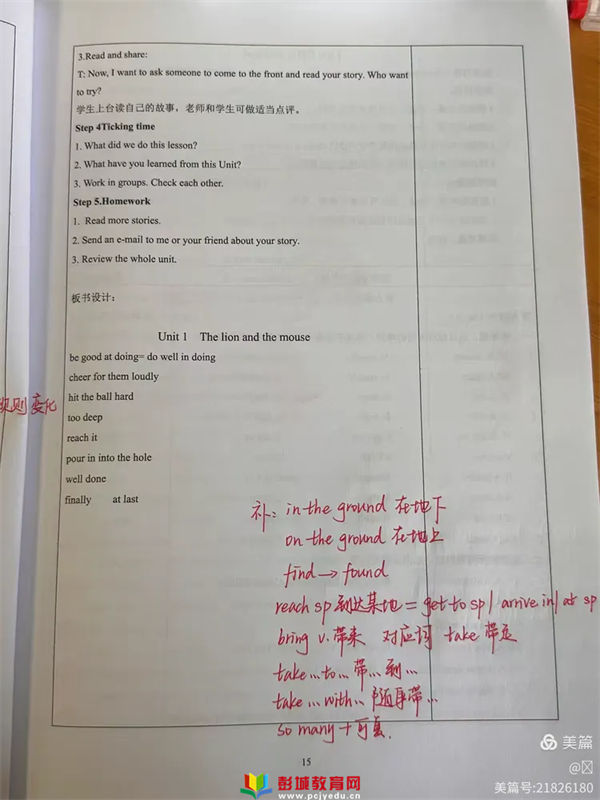 3.Read and share:
T: Now, I want to ask someone to come to the front and read your story. Who want
to try?
学生上台读自己的故事，老师和学生可做适当点评。
Step 4Ticking time
1. What did we do this lesson?
2. What have you learned from this Unit?
3. Work in groups. Check each other.
Step 5.Homework
1. Read more stories.
2. Send an e-mail to me or your friend about your story.
3. Review the whole unit.
板书设计：
Unit 1 The lion and the mouse
be good at doing= do well in doing
cheer for them loudly
hit the ball hard
规则变化
too deep
reach it
pour in into the hole
well done
finally at last
补: in the ground 在地下
on the ground 在地上
find → found
reach sp 到达某地 = get to sp/ arrive in/ at sp
bring v. 带来 对应词 take 带走
take...to... 带...到...
take...with... 随身带...
so many + 可复.
15
美篇
@
美篇号:21826180
彭城教育网
www.pcjyedu.cn